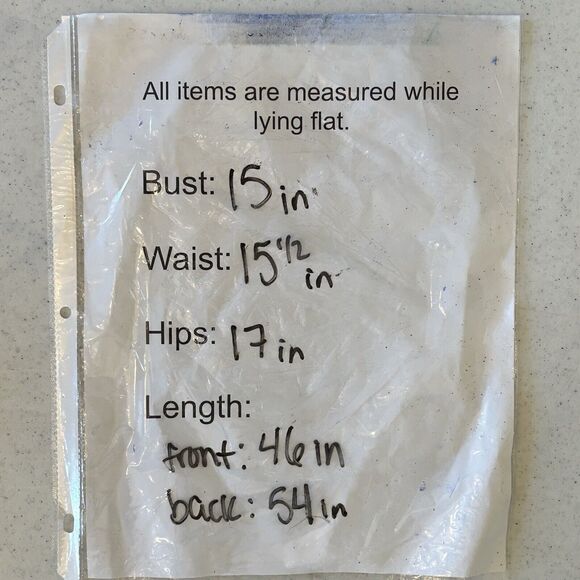 All items are measured while
lying flat.
Bust: 15 in
Waist: 15 1/2 in
Hips: 17 in
Length:
front: 46 in
back: 54 in